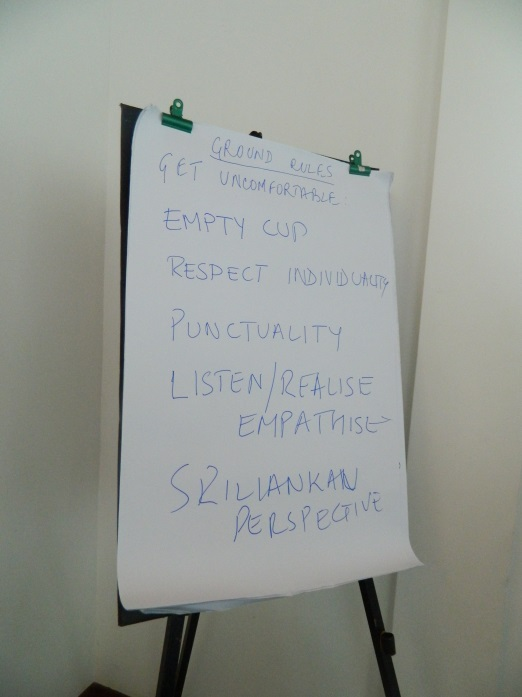 GROUND RULES
GET UNCOMFORTABLE:
EMPTY CUP
RESPECT INDIVIDUALITY
PUNCTUALITY
LISTEN/REALISE
EMPATHISE
SRILIANKAN
PERSPECTIVE